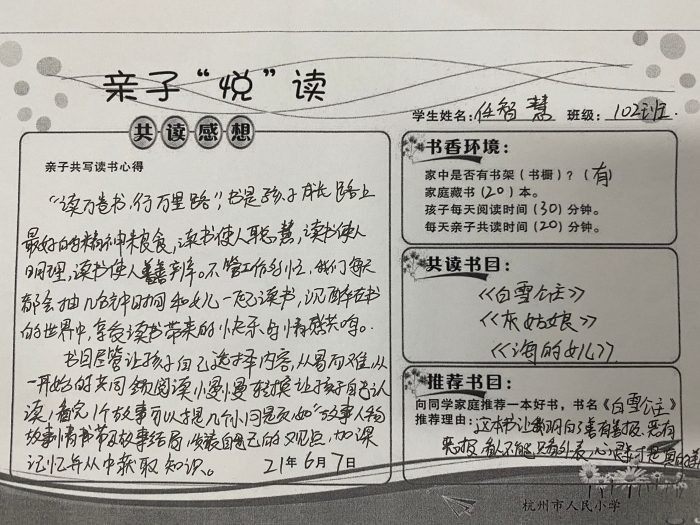 亲子“悦”读
学生姓名：任智慧 班级：102班
共读感想
亲子共写读书心得
“读万卷书，行万里路”，书是孩子成长路上
最好的精神粮食，读书使人聪慧，读书使人
明理，读书使人善辨。不管工作多忙，我们每天
都会抽几分钟时间和女儿一起读书，沉醉在书
的世界中，享受读书带来的快乐与情感共鸣。
书目尽管让孩子自己选择内容，从易而难，从
一开始的共同 阅读小慢慢 转换让孩子自己认
读，看完1个故事可以提几个小问题如“故事人物
故事情节及故事结局，发表自己的观点，加深
记忆并从中获取知识。 21年6月7日
书香环境：
家中是否有书架（书橱）？（有）
家庭藏书（20）本。
孩子每天阅读时间（30）分钟。
每天亲子共读时间（20）分钟。
共读书目：
《白雪公主》
《灰姑娘》
《海的女儿》
推荐书目：
向同学家庭推荐一本好书，书名《白雪公主》
推荐理由：这本书让我明白了善有善报，恶有
恶报，看人不能只看外表，心灵才是真的美
杭州市人民小学